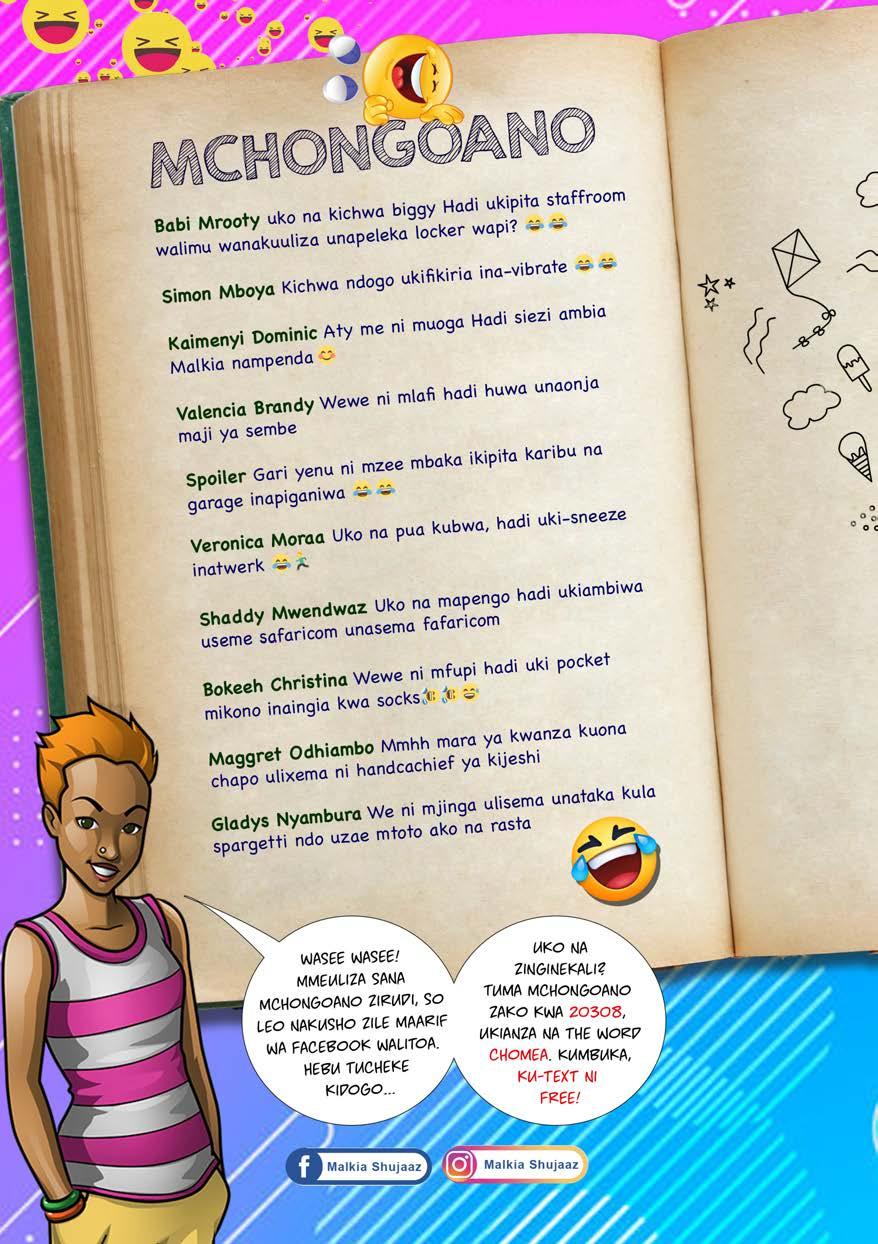 MCHONGOANO
Babi Mrooty uko na kichwa biggy Hadi ukipita staffroom
walimu wanakuuliza unapeleka locker wapi? 😂😂
Simon Mboya Kichwa ndogo ukifikiria ina-vibrate 😂😂
Kaimenyi Dominic Aty me ni muoga Hadi siezi ambia
Malkia nampenda 😊
Valencia Brandy Wewe ni mlafi hadi huwa unaonja
maji ya sembe
Spoiler Gari yenu ni mzee mbaka ikipita karibu na
garage inapiganiwa 😂😂
Veronica Moraa Uko na pua kubwa, hadi uki-sneeze
inatwerk 😂🏃‍♂️
Shaddy Mwendwaz Uko na mapengo hadi ukiambiwa
useme safaricom unasema fafaricom
Bokeeh Christina Wewe ni mfupi hadi uki pocket
mikono inaingia kwa socks🤣🤣😅
Maggret Odhiambo Mmhh mara ya kwanza kuona
chapo ulixema ni handcachief ya kijeshi
Gladys Nyambura We ni mjinga ulisema unataka kula
spargetti ndo uzae mtoto ako na rasta
WASEE WASEE!
MMEULIZA SANA
MCHONGOANO ZIRUDI, SO
LEO NAKUSHO ZILE MAARIF
WA FACEBOOK WALITOA.
HEBU TUCHEKE
KIDOGO...
UKO NA
ZINGINEKALI?
TUMA MCHONGOANO
ZAKO KWA 20308,
UKIANZA NA THE WORD
CHOMEA. KUMBUKA,
KU-TEXT NI
FREE!
Malkia Shujaaz
Malkia Shujaaz